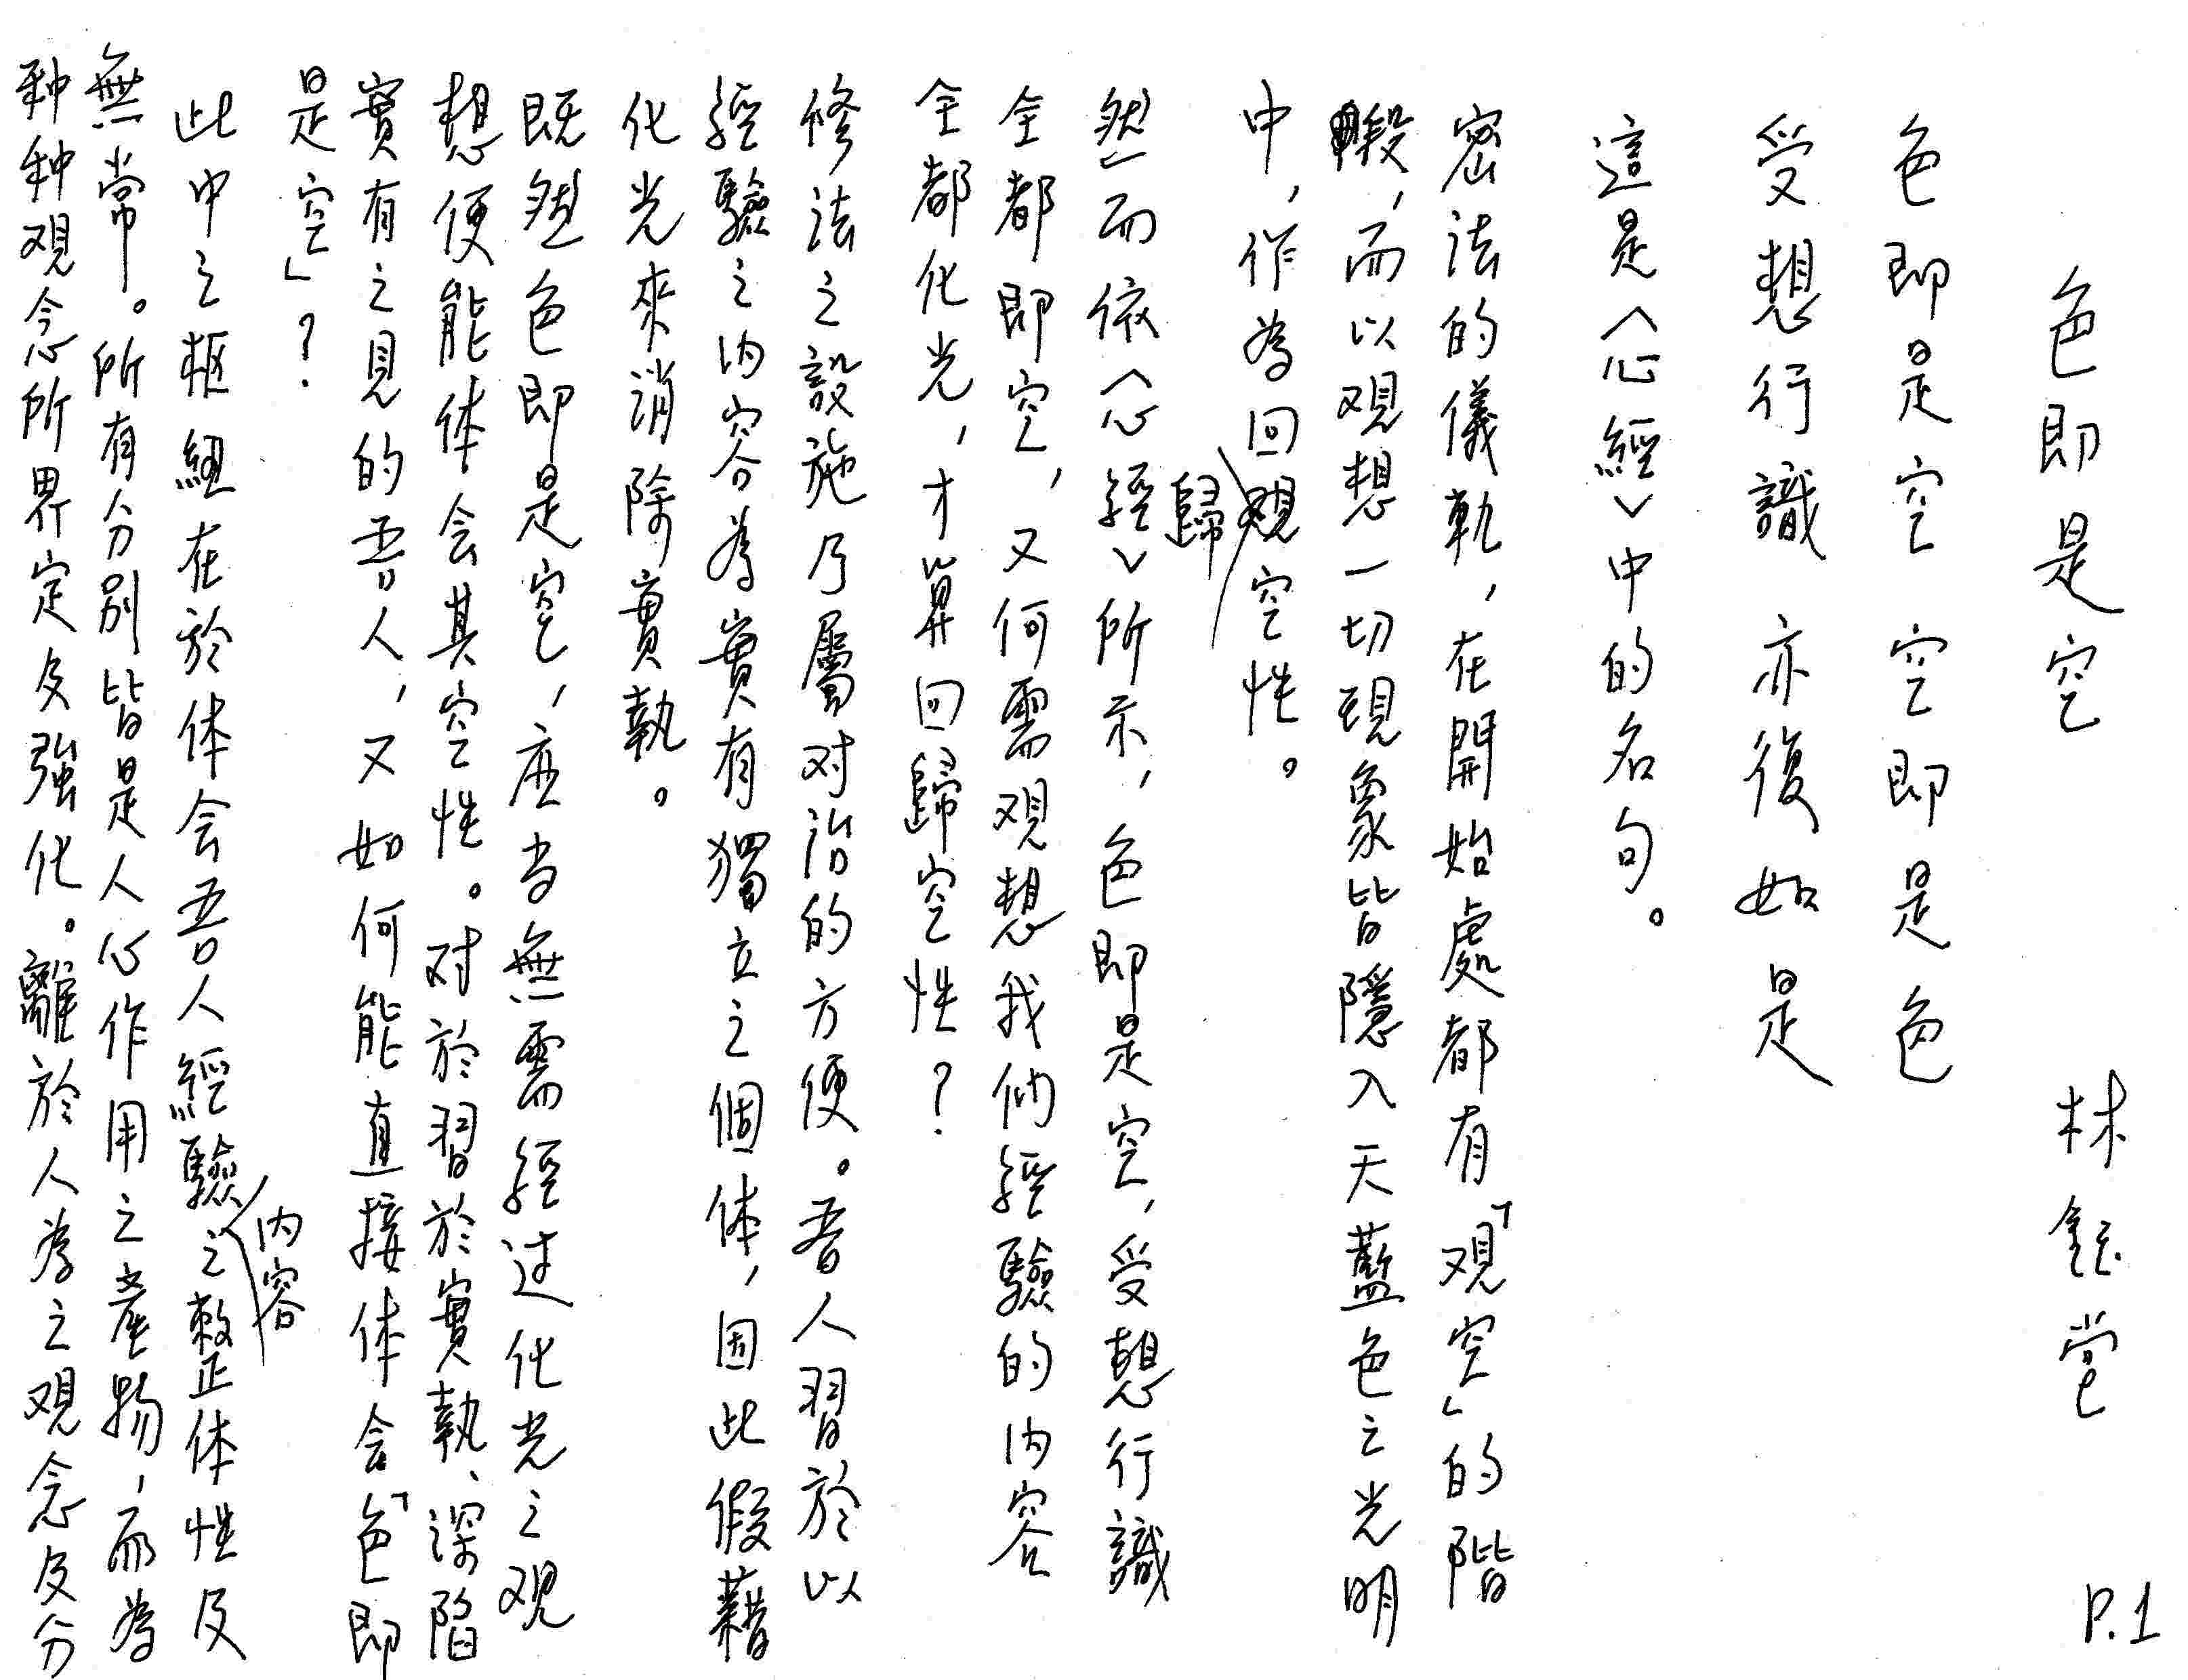 色即是空
林鈺堂
P.1
色即是空 空即是色
受想行識 亦復如是
這是〈心經〉中的名句。
密法的儀軌，在開始處都有「观空」的階
段，而以观想一切現象皆隱入天藍色之光明
中，作為回歸空性。
然而依〈心經〉所示，色即是空，受想行識
全都即空，又何需观想我們經驗的内容
全都化光，才算回歸空性？
修法之設施乃屬对治的方便。吾人習於以
經驗之内容為實有獨立之個体，因此假藉
化光來消除實執。
既然色即是空，应当無需經过化光之观
想便能体会其空性。对於習於實執、深陷
實有之見的吾人，又如何能直接体会「色即
是空」？
此中之樞紐在於体会吾人經驗内容之整体性及
無常。所有分別皆是人心作用之產物，而為
种种观念所界定及強化。離於人為之观念及分